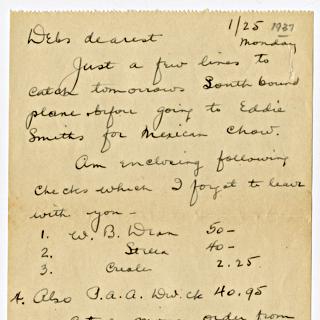 1/25 1937
Debs dearest Monday
Just a few lines to
catch tomorrows South bound
plane before going to Eddie
Smiths for Mexican chow.
Am enclosing following
checks which I forgot to leave
with you -
1. W. B. Dean 50-
2. 40-
3. Creole 2.25
4. Also P.A.A. 40.95
order from